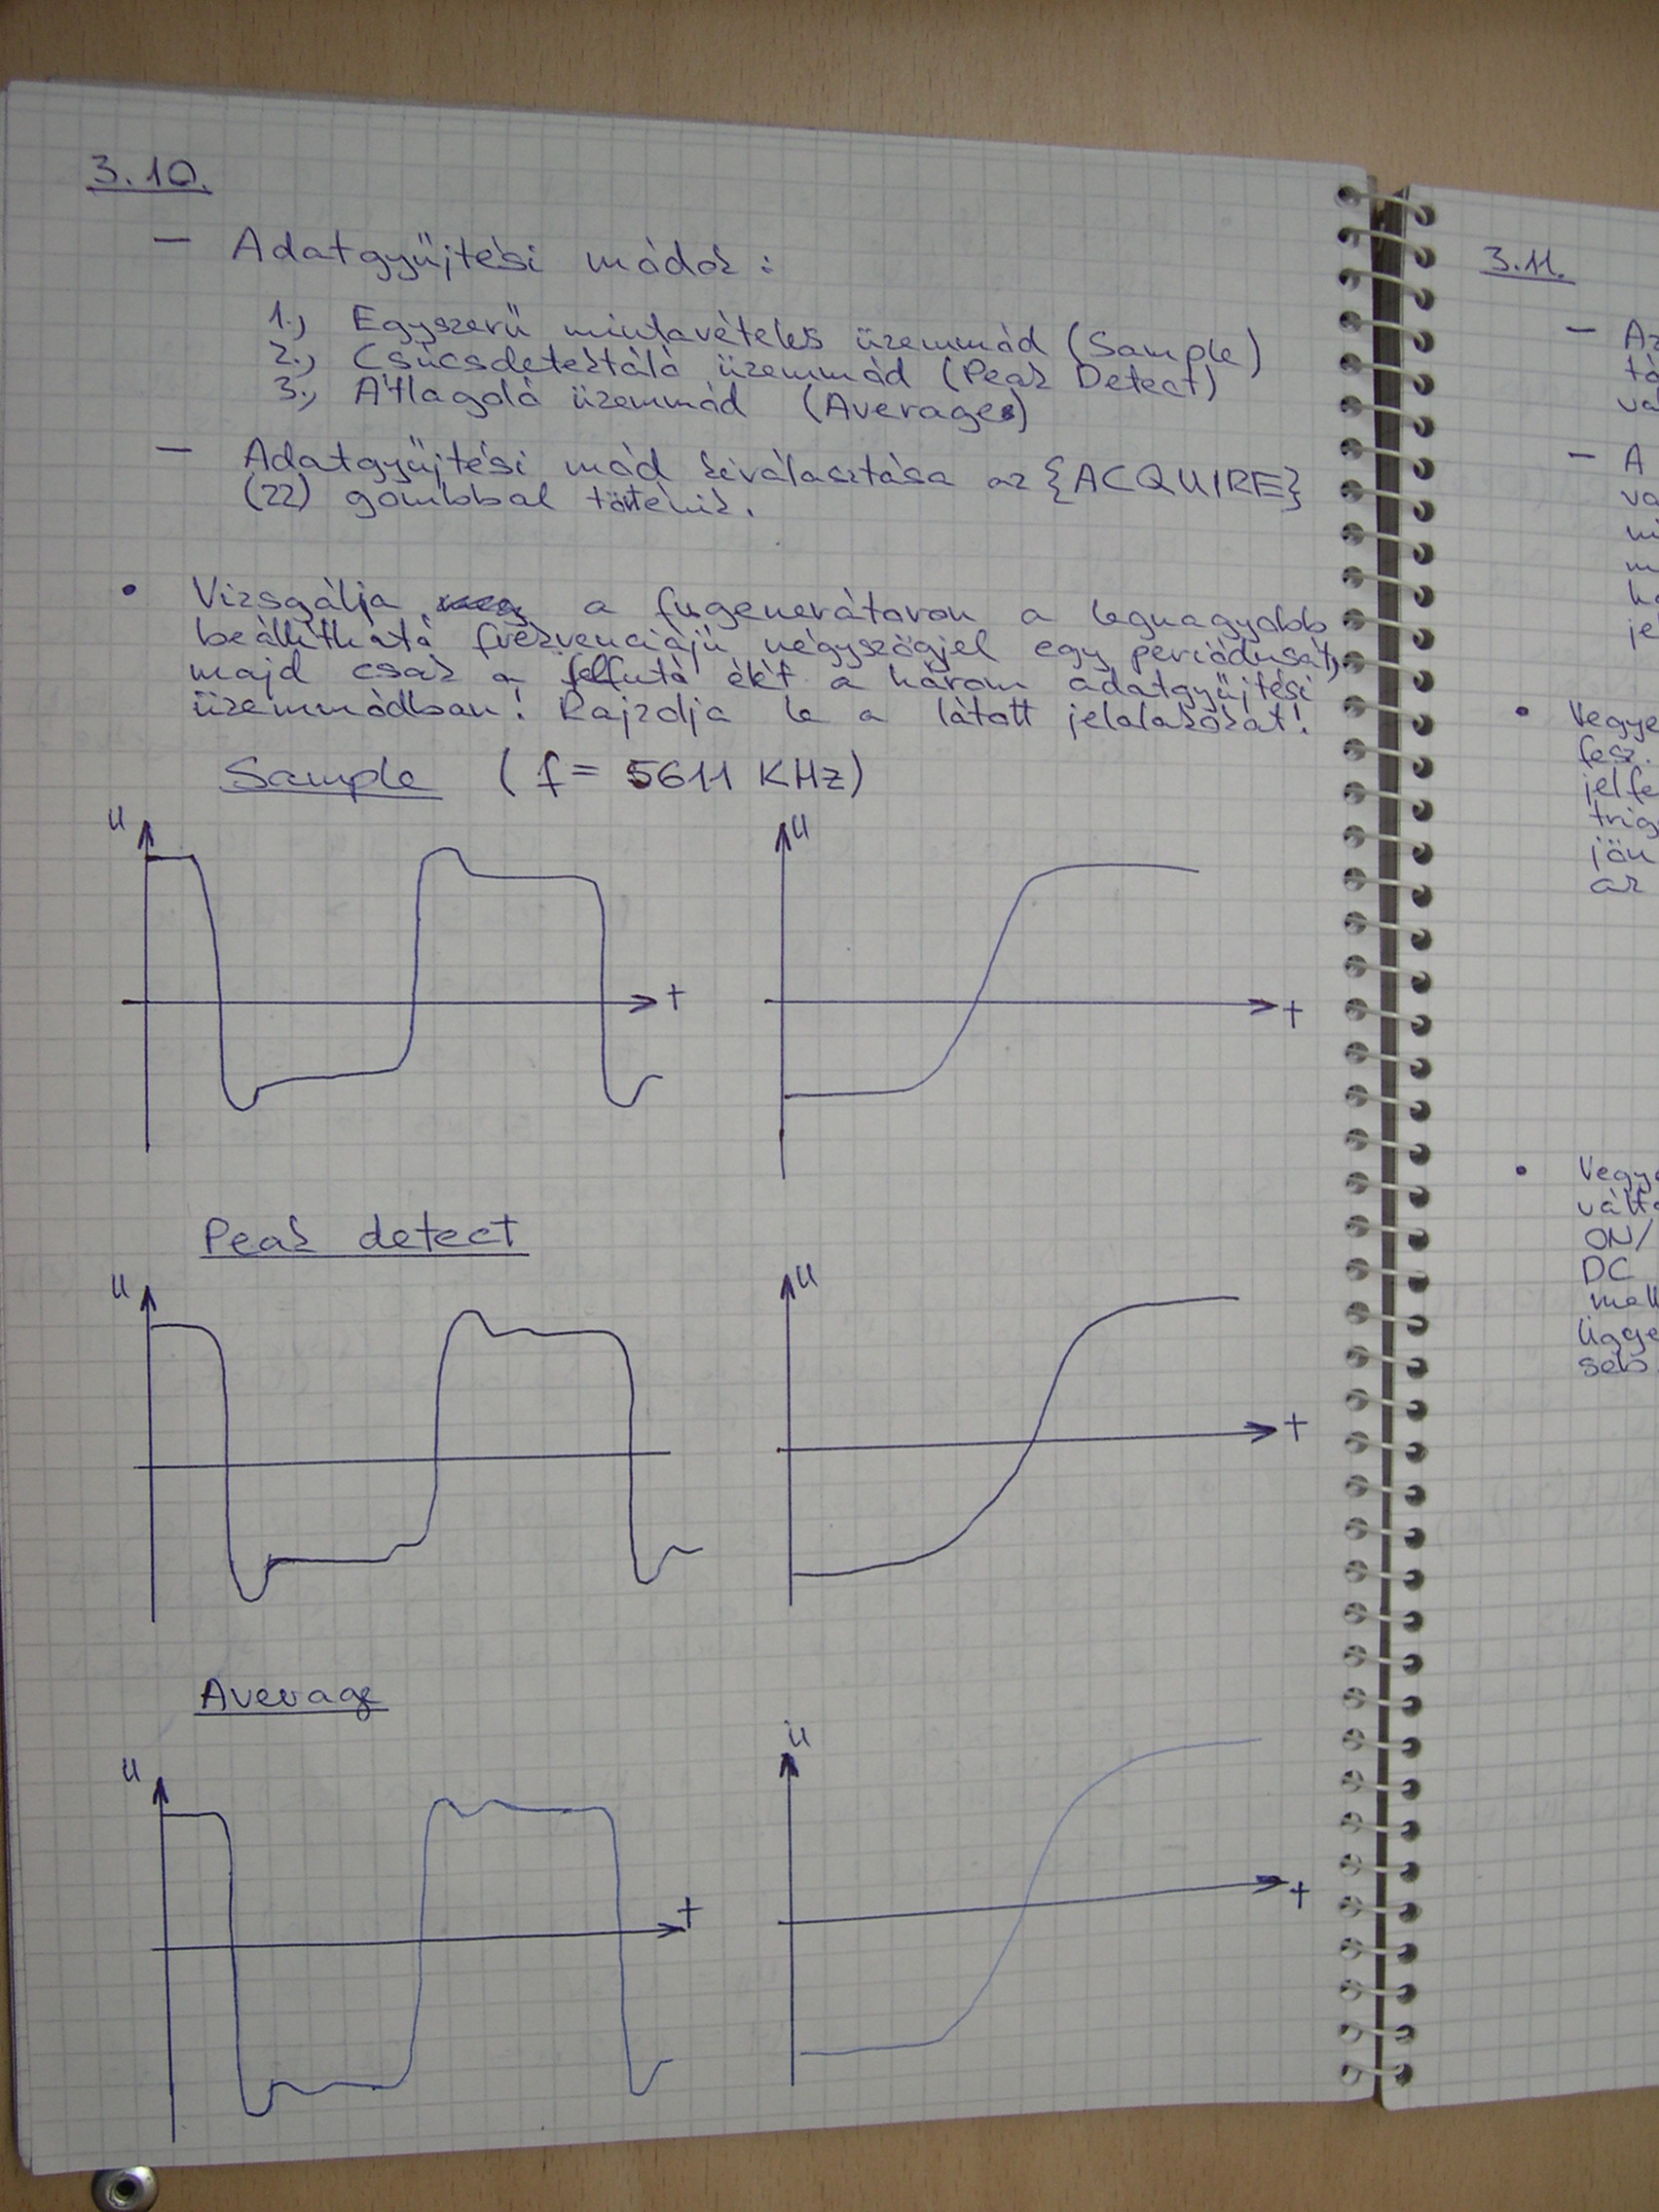 3.10.
- Adatgyűjtési módok:
1., Egyszerű mintavételes üzemmód (Sample)
2., Csúcsdetektáló üzemmód (Peak Detect)
3., Átlagoló üzemmód (Average)
- Adatgyűjtési mód kiválasztása az {ACQUIRE}
(22) gombbal történik.
• Vizsgálja meg a fugenerátoron a legnagyobb
beállítható frekvenciájú négyszögjel egy periódusát,
majd csak a felfutó élét a három adatgyűjtési
üzemmódban! Rajzolja le a látott jelalakokat!
Sample (f = 5611 KHz)
U
t
U
t
Peak detect
U
U
t
Average
U
t
U
t
3.11.
- Az
- A
va
m
je
• Vegye
fesz.
jelfe
trig
jön
az
• Vegye
ON/
DC
mell
függe
seb.